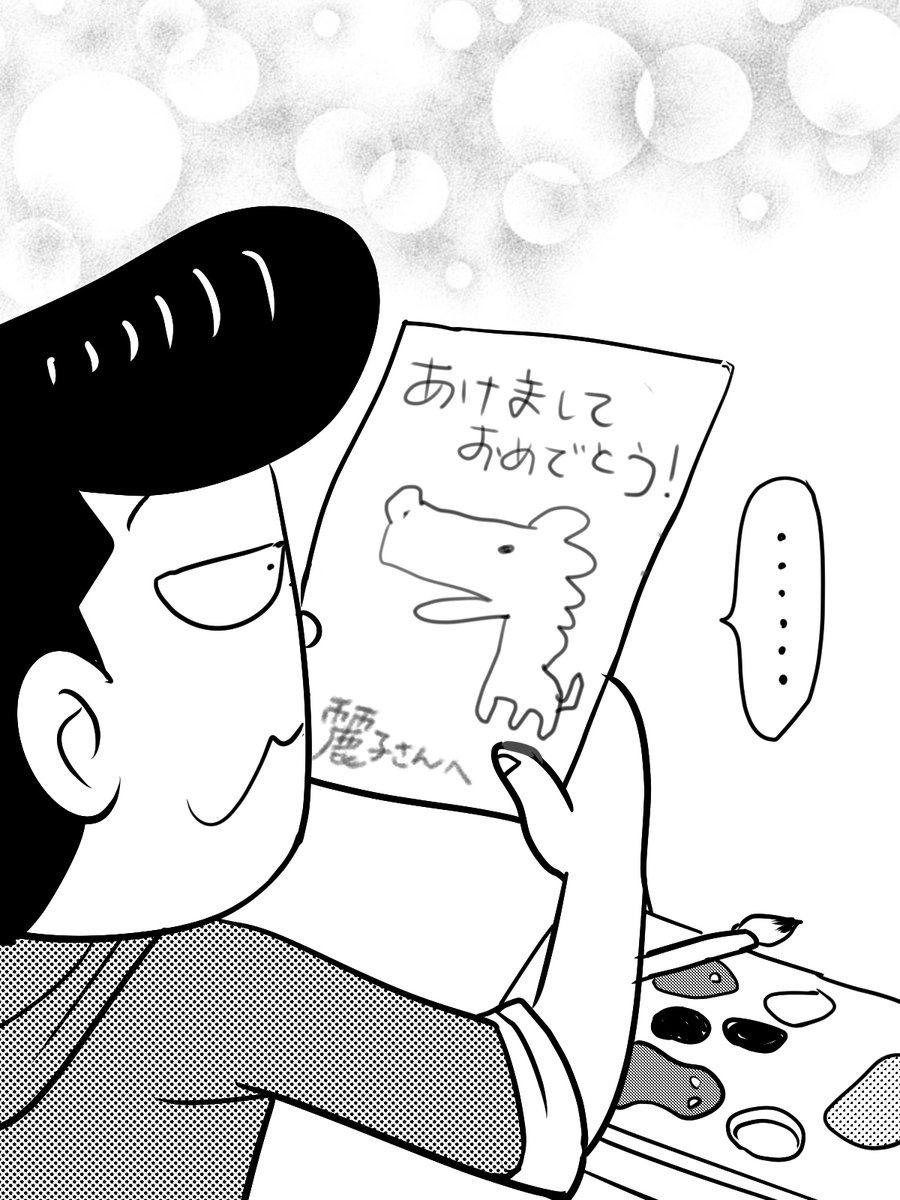 あけまして
おめでとう!
麗子さんへ
......